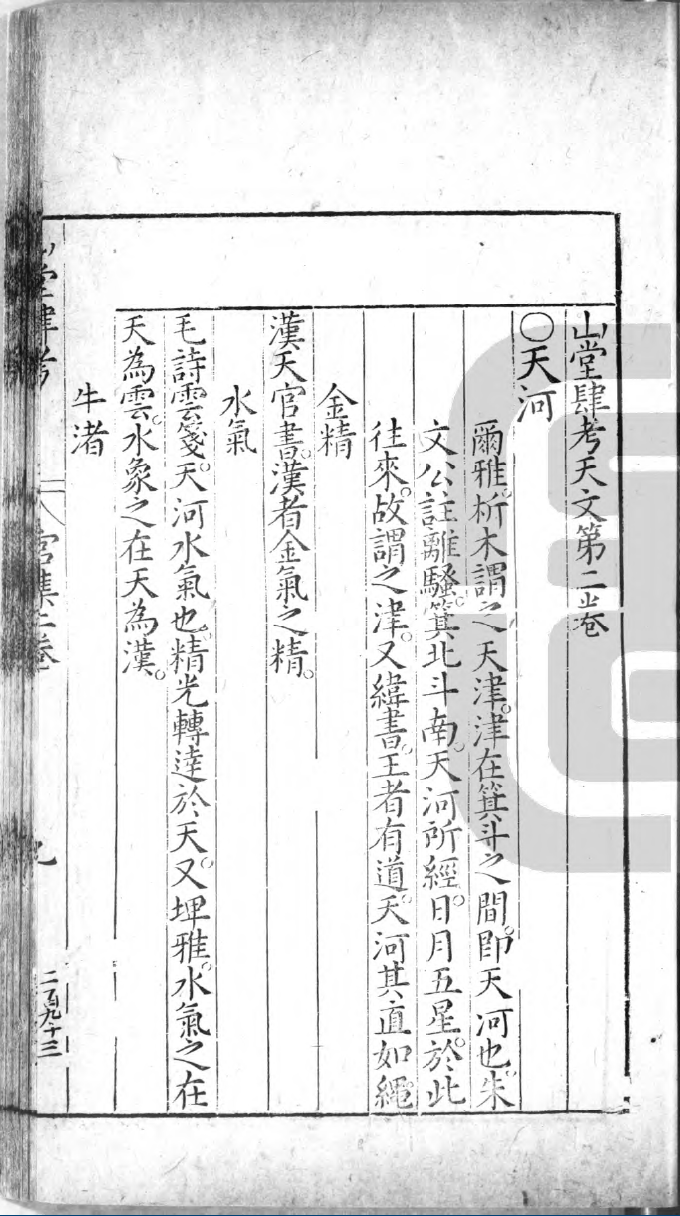 山堂肆考天文第二卷
〇天河
爾雅。析木謂之天津。津在箕斗之間。即天河也。朱
文公註離騷。箕北斗南。天河所經。日月五星。於此
往來。故謂之津。又緯書。王者有道。天河其直如繩。
金精
漢天官書。漢者金氣之精。
水氣
毛詩雲箋。天河水氣也。精光轉逹於天。又埤雅。水氣之在
天為雲。水象之在天為漢。
牛渚
山堂肆考
宫集二卷
九
二百九十三